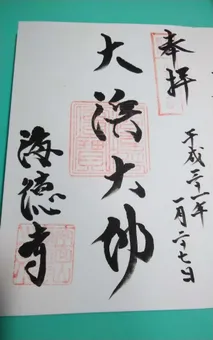 奉拝
平成三十一年
一月二十七日
大浜大師
海徳寺